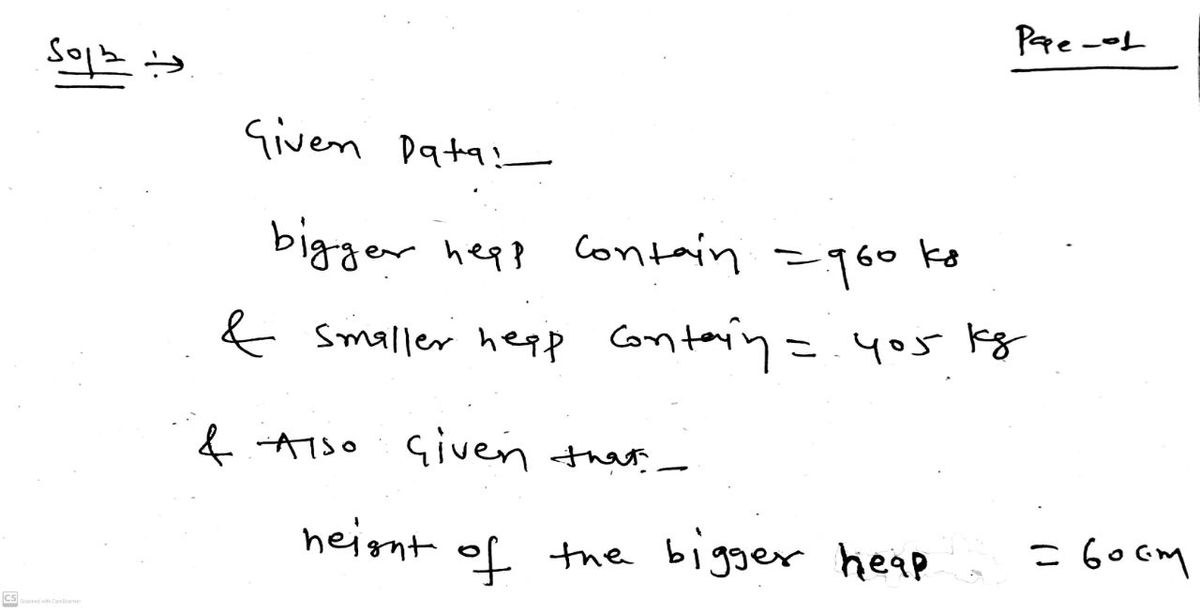 Soln :→
Page-01
Given Data:-
bigger heap contain = 960 kg
& smaller heap contain = 405 kg
& Also Given that:-
height of the bigger heap = 60 cm
CS Scanned with CamScanner